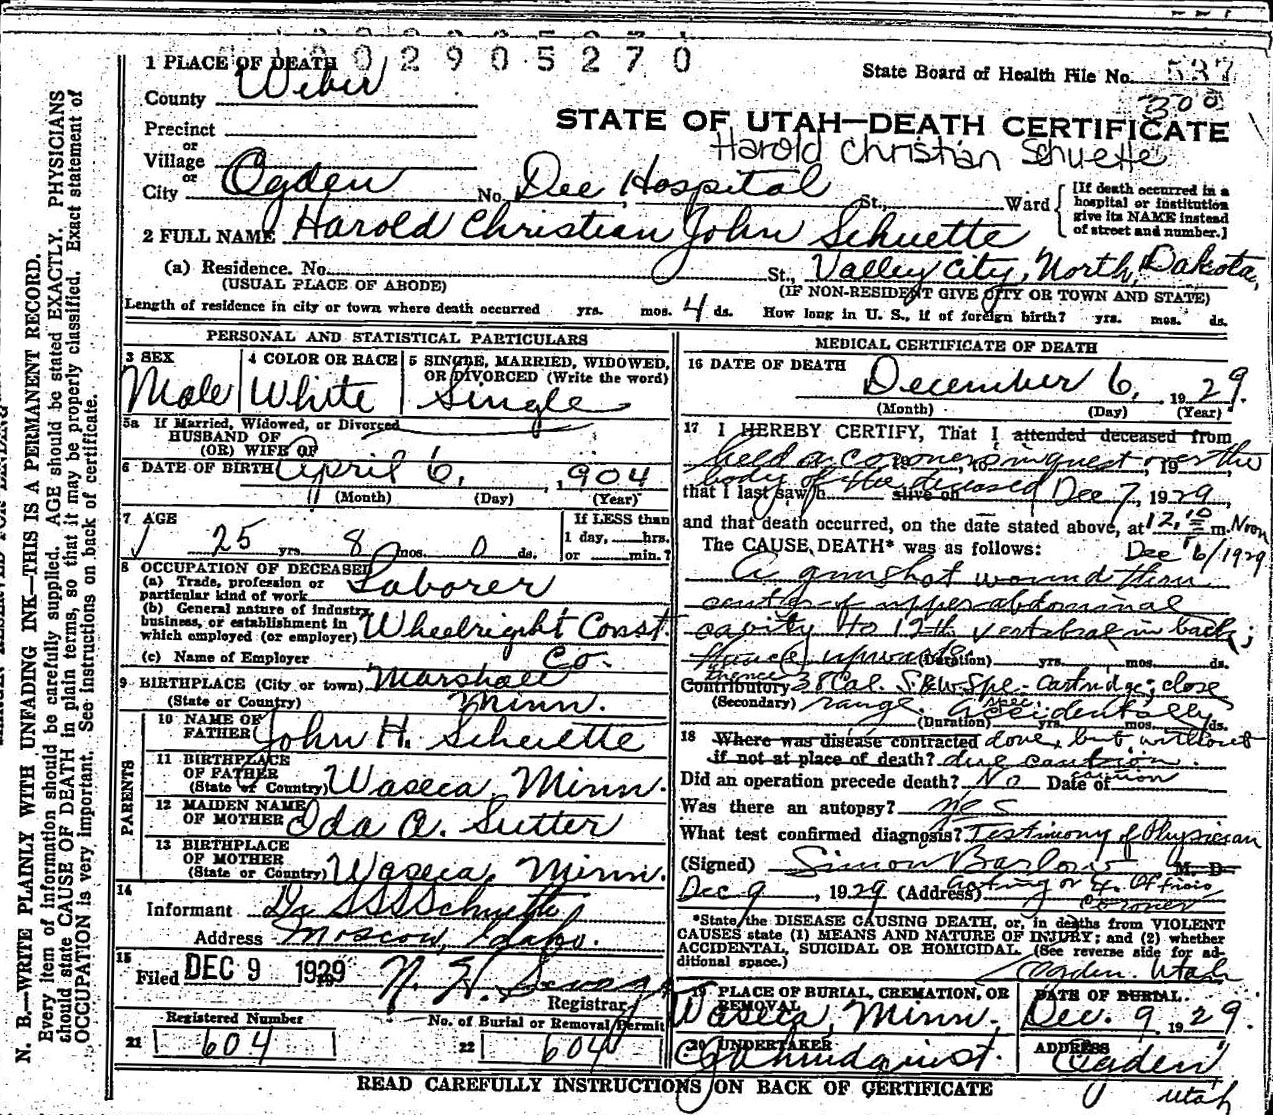 0 0 2 9 0 5 2 7 0
1 PLACE OF DEATH
State Board of Health File No. 537
300
County Weber
STATE OF UTAH—DEATH CERTIFICATE
Harold Christian Schuette
Precinct
or
Village
or
City Ogden No. Dee Hospital St., Ward
[If death occurred in a hospital or institution give its NAME instead of street and number.]
2 FULL NAME Harold Christian John Schuette
(a) Residence. No. St., Valley City, North Dakota,
(USUAL PLACE OF ABODE) (IF NON-RESIDENT GIVE CITY OR TOWN AND STATE)
Length of residence in city or town where death occurred yrs. mos. 4 ds. How long in U. S., if of foreign birth? yrs. mos. ds.
PERSONAL AND STATISTICAL PARTICULARS
3 SEX Male
4 COLOR OR RACE White
5 SINGLE, MARRIED, WIDOWED, OR DIVORCED (Write the word) Single
5a If Married, Widowed, or Divorced
HUSBAND OF
(OR) WIFE OF
6 DATE OF BIRTH April 6, 1904
(Month) (Day) (Year)
7 AGE 25 yrs. 8 mos. 0 ds.
If LESS than
1 day, hrs.
or min.?
8 OCCUPATION OF DECEASED
(a) Trade, profession or
particular kind of work Laborer
(b) General nature of industry,
business, or establishment in
which employed (or employer) Wheelright Const. Co.
(c) Name of Employer
9 BIRTHPLACE (City or town) Marshall
(State or Country) Minn.
PARENTS
10 NAME OF FATHER John H. Schuette
11 BIRTHPLACE
OF FATHER
(State or Country) Waseca, Minn.
12 MAIDEN NAME
OF MOTHER Ida A. Sutter
13 BIRTHPLACE
OF MOTHER
(State or Country) Waseca, Minn.
14
Informant Schuette
Address Moscow, Idaho.
15
Filed DEC 9 1929
Registrar
Registered Number
21 604
No. of Burial or Removal Permit
22 604
MEDICAL CERTIFICATE OF DEATH
16 DATE OF DEATH
December 6, 1929.
(Month) (Day) (Year)
17 I HEREBY CERTIFY, That I attended deceased from
held a coroners inquest over the 19
body of the deceased
that I last saw h alive on Dec 7, 1929,
and that death occurred, on the date stated above, at 12.10 m. Noon
The CAUSE DEATH* was as follows: Dec 6/1929
A gunshot wound thru
center of upper abdominal
cavity to 12th vertebrae in back;
thence upwards
(Duration) yrs. mos. ds.
Contributory 38 Cal. S&W Spe. Cartridge; close
(Secondary) range. accidentally
(Duration) yrs. mos. ds.
18 Where was disease contracted done, but without
if not at place of death? due caution.
caution
Did an operation precede death? No Date of
Was there an autopsy? yes
What test confirmed diagnosis? Testimony of Physician
(Signed) Simon Barlow M. D.
Dec 9, 1929 (Address) Acting or Ex Officio
Coroner
*State the DISEASE CAUSING DEATH, or, in deaths from VIOLENT
CAUSES state (1) MEANS AND NATURE OF INJURY; and (2) whether
ACCIDENTAL, SUICIDAL OR HOMICIDAL. (See reverse side for ad-
ditional space.)
Ogden. Utah
19 PLACE OF BURIAL, CREMATION, OR
REMOVAL
Waseca, Minn.
DATE OF BURIAL.
Dec. 9, 1929.
20 UNDERTAKER
ADDRESS
Ogden
Utah
READ CAREFULLY INSTRUCTIONS ON BACK OF CERTIFICATE
N. B.—WRITE PLAINLY WITH UNFADING INK—THIS IS A PERMANENT RECORD.
Every item of information should be carefully supplied. AGE should be stated EXACTLY. PHYSICIANS
should state CAUSE OF DEATH in plain terms, so that it may be properly classified. Exact statement of
OCCUPATION is very important. See instructions on back of certificate.